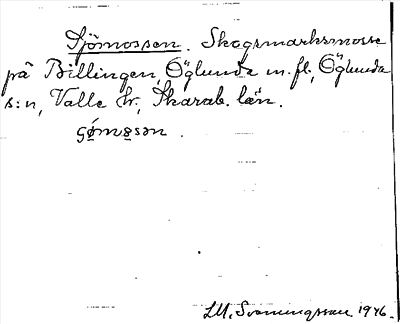 Sjömossen. Skogsmarksmosse
på Billingen, Öglunda m.fl., Öglunda
s:n, Valle hr, Skarab. län.
Svenningsson 1946.